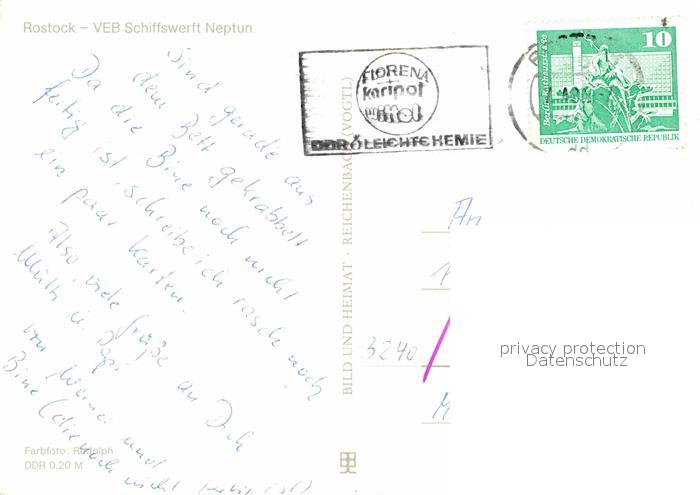 Rostock – VEB Schiffswerft Neptun
Sind gerade aus
dem Bett gekrabbelt
Da die Bine noch nicht
fertig ist, schreibe ich rasch noch
ein paar Karten.
Also viele Grüße an Dich
Mutti u. Papi
von Werner und
Bine (die noch nicht fertig ist!)
Farbfoto: Rudolph
DDR 0,20 M
BILD UND HEIMAT · REICHENBACH (VOGTL)
FLORENA
karipol
DDR LEICHTCHEMIE
Berlin, Rathausstraße
10
DEUTSCHE DEMOKRATISCHE REPUBLIK
An
3240
privacy protection
Datenschutz